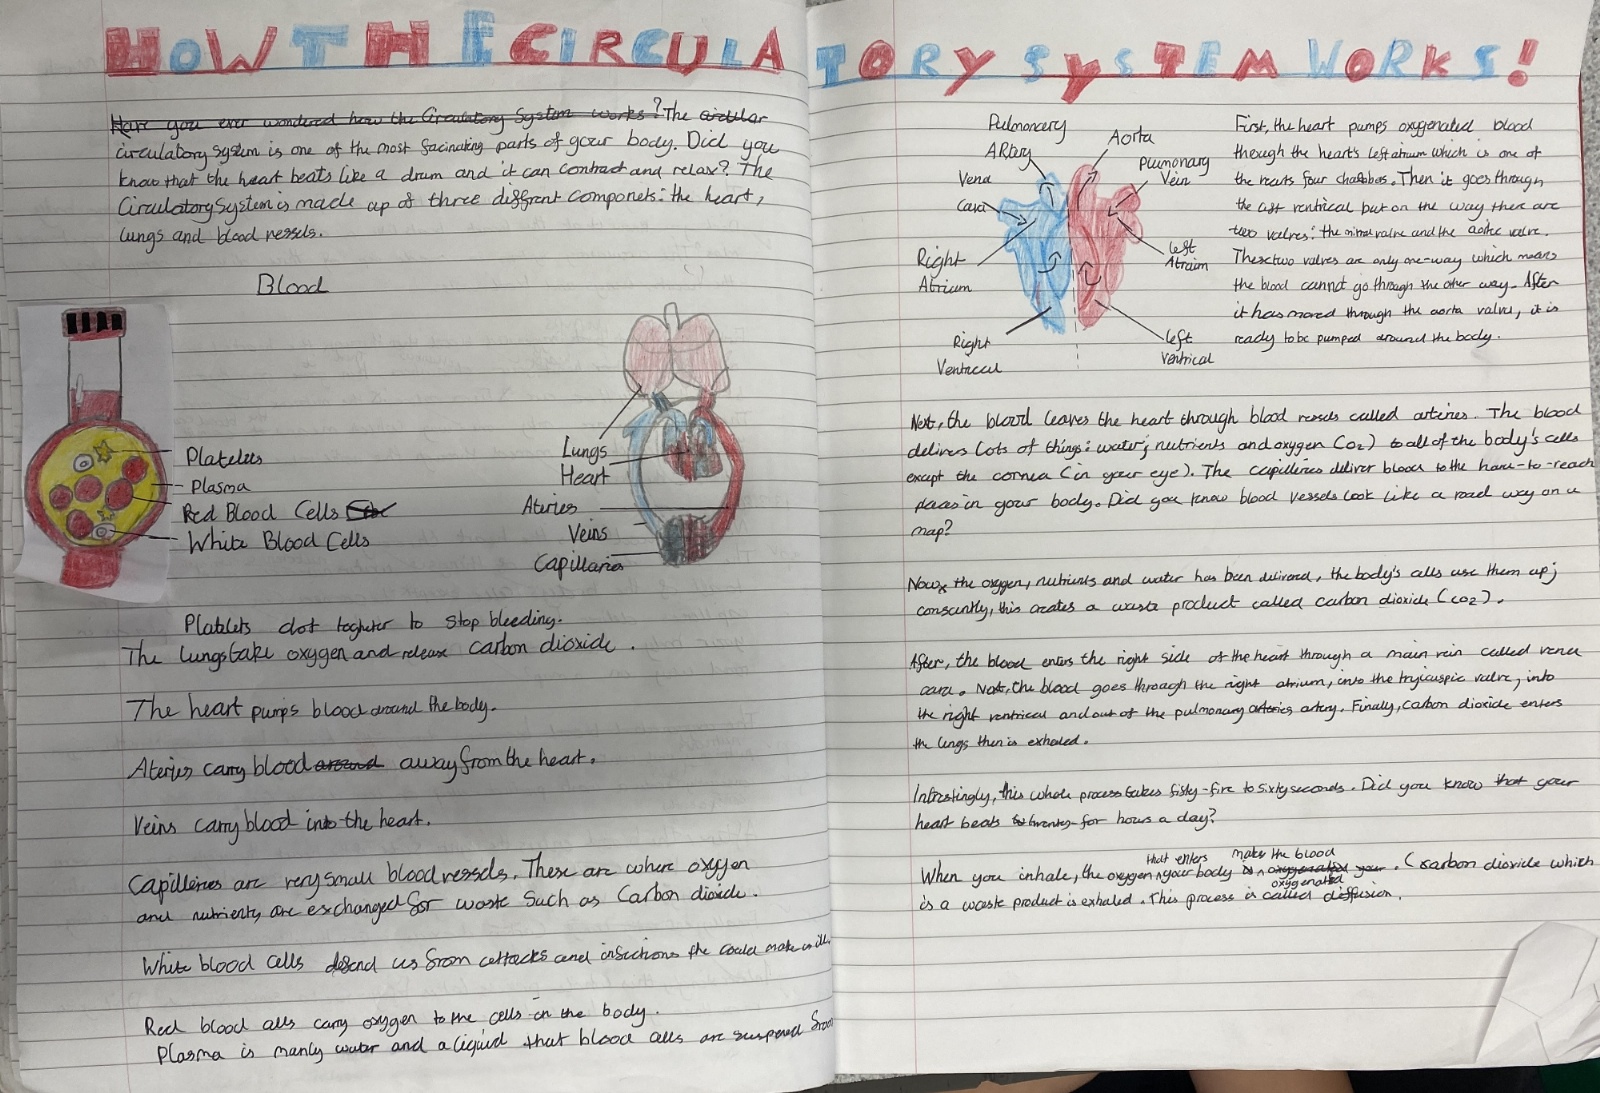 HOW THE CIRCULATORY SYSTEM WORKS!
Have you ever wondered how the Circulatory System works? The circular
circulatory system is one of the most facinating parts of your body. Did you
know that the heart beats like a drum and it can contract and relax? The
Circulatory System is made up of three different componets: the heart,
lungs and blood vessels.
Blood
Platelets
Plasma
Red Blood Cells
White Blood Cells
Lungs
Heart
Ateries
Veins
Capillaries
Platelets clot togheter to stop bleeding.
The lungs take oxygen and release carbon dioxide.
The heart pumps blood around the body.
Ateries carry blood around away from the heart.
Veins carry blood into the heart.
Capilleries are very small blood vessels. These are where oxygen
and nutrients are exchanged for waste such as Carbon dioxide.
White blood cells defend us from attacks and infections the could make us ill.
Red blood cells carry oxygen to the cells in the body.
Plasma is manly water and a liquid that blood cells are suspened from
Pulmonary
ARtery
Aorta
Pulmonary
Vein
Vena
Cava
Right
Atrium
left
Atraim
Right
Ventrical
left
ventrical
First, the heart pumps oxygenated blood
though the heart's left atrium which is one of
the hearts four chambers. Then it goes through
the left ventrical but on the way there are
two valves: the mitral valve and the aortic valve.
These two valves are only one-way which means
the blood cannot go through the other way. After
it has moved through the aorta valve, it is
ready to be pumped around the body.
Next, the blood leaves the heart through blood vessels called arteries. The blood
delivers lots of things: water, nutrients and oxygen (O2) to all of the body's cells
except the cornea (in your eye). The capilleries deliver blood to the hard-to-reach
places in your body. Did you know blood vessels look like a road way on a
map?
Now, the oxygen, nutrients and water has been delivered, the body's cells use them up;
constantly, this creates a waste product called carbon dioxide (CO2).
After, the blood enters the right side of the heart through a main vein called vena
cava. Next, the blood goes through the right atrium, into the tryicuspic valve, into
the right ventrical and out of the pulmonary arteries artery. Finally, carbon dioxide enters
the lungs then is exhaled.
Intrestingly, this whole process takes fifty-five to sixty seconds. Did you know that your
heart beats twenty-for hours a day?
that enters makes the blood
When you inhale, the oxygen your body is oxygenated your. (carbon dioxide which
oxygenated
is a waste product is exhaled. This process is called diffusion.